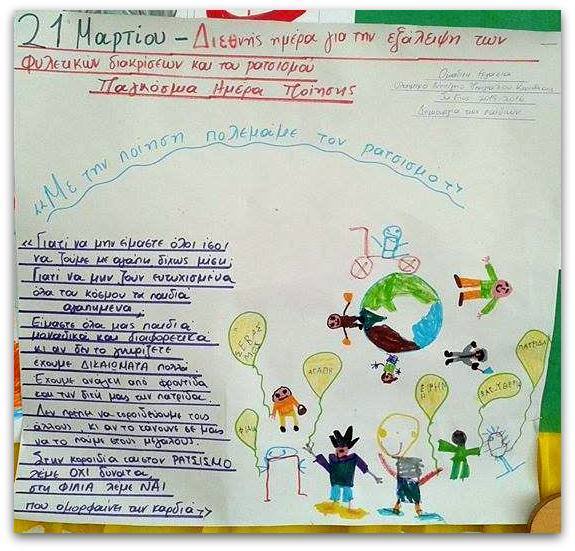 21 Μαρτίου - Διεθνής ημέρα για την εξάλειψη των
φυλετικών διακρίσεων και του ρατσισμού
Παγκόσμια Ημέρα Ποίησης
Ομαδική Εργασία
«Με την ποίηση πολεμάμε τον ρατσισμό τ»
«Γιατί να μην είμαστε όλοι ίσοι
να ζούμε με αγάπη δίχως μίση;
Γιατί να μην ζουν ευτυχισμένα
όλα του κόσμου τα παιδιά
αγαπημένα;
Είμαστε όλα μας παιδιά
μοναδικά και διαφορετικά
κι αν δεν το γνωρίζετε
έχουμε ΔΙΚΑΙΩΜΑΤΑ πολλά
Έχουμε ανάγκη από φροντίδα
και την δική μας την πατρίδα.
Δεν πρέπει να κοροϊδεύουμε τους
άλλους κι αν το κάνουνε σε μας
να το πούμε στους μεγάλους.
Στην κοροϊδία και στον ΡΑΤΣΙΣΜΟ
λέμε ΟΧΙ δυνατά,
στη ΦΙΛΙΑ λέμε ΝΑΙ
που ομορφαίνει την καρδιά τ»
ΣΕΒΑΣ
ΜΟΣ
ΑΓΑΠΗ
ΦΙΛΙΑ
ΕΙΡΗΝ
Η
ΕΛΕΥΘΕΡΙΑ
ΠΑΤΡΙΔΑ